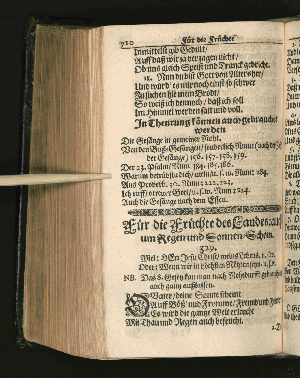 710 Für die Früchte
Inmittelst gib Gedult/
Auff daß wir ja verzagen nicht/
Ob uns gleich Speiß und Tranck gebricht.
18. Nun du bist Gott von Alters her/
Und würd es uns noch einst so schwer
Zu suchen hie mein Brodt/
So weiß ich dennoch/ daß ich soll
Im Himmel werden satt und voll.
In Theurung können auch gebraucht
werden
Die Gesänge in gemeiner Noht.
Von den Buß-Gesängen/ sonderlich Num: auch
der Gesänge/ 156. 157. 158. 159.
Der 23. Psalm/ Num: 184. 185. 186.
Warum betrübst du dich/ mein Num: 184.
Aus Proverb. 30. Num: 222. 223.
Ich ruff Gott Num: 224.
Auch die Gesänge nach dem Essen.
Für die Früchte des Landes/
um Regen und Sonnen-Schein.
329.
Mel: HErr Jesu Christ/ meins Lebens
Oder: Wenn wir in höchsten Nöhten seyn.
NB. Das 8. Gesetz kan man nach Nohdurfft
auch gantz außlassen.
O Vater/ deine Sonne scheint
Auff Böß' und Fromme/ Freund und
Es wird die gantze Welt erfreut
Mit Thau und Regen auch befeucht.